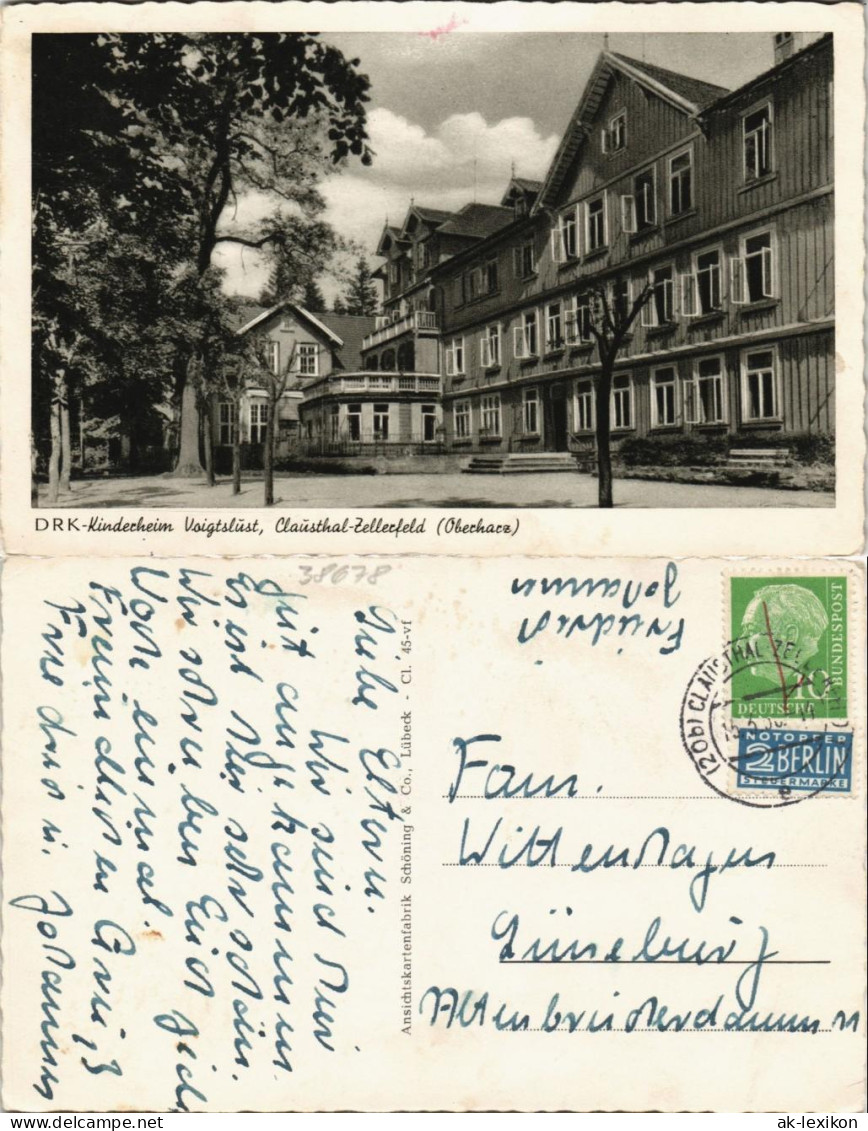 DRK-Kinderheim Voigtslust, Clausthal-Zellerfeld (Oberharz)
38678
Liebe Eltern.
Wir sind hier
gut angekommen
Es ist hier sehr schön.
Wir schreiben Euch jede
Woche einmal.
Freundlichen Gruß
Friedrich u. Johannes
Ansichtskartenfabrik Schöning & Co., Lübeck - Cl. 45-vf
Friedrich
Johannes
10
DEUTSCHE
BUNDESPOST
NOTOPFER
2 BERLIN
STEUERMARKE
(20b) CLAUSTHAL-ZELLERFELD
e
Fam.
Wittenhagen
Lüneburg
Altenbrückerdamm 11
ak-lexikon